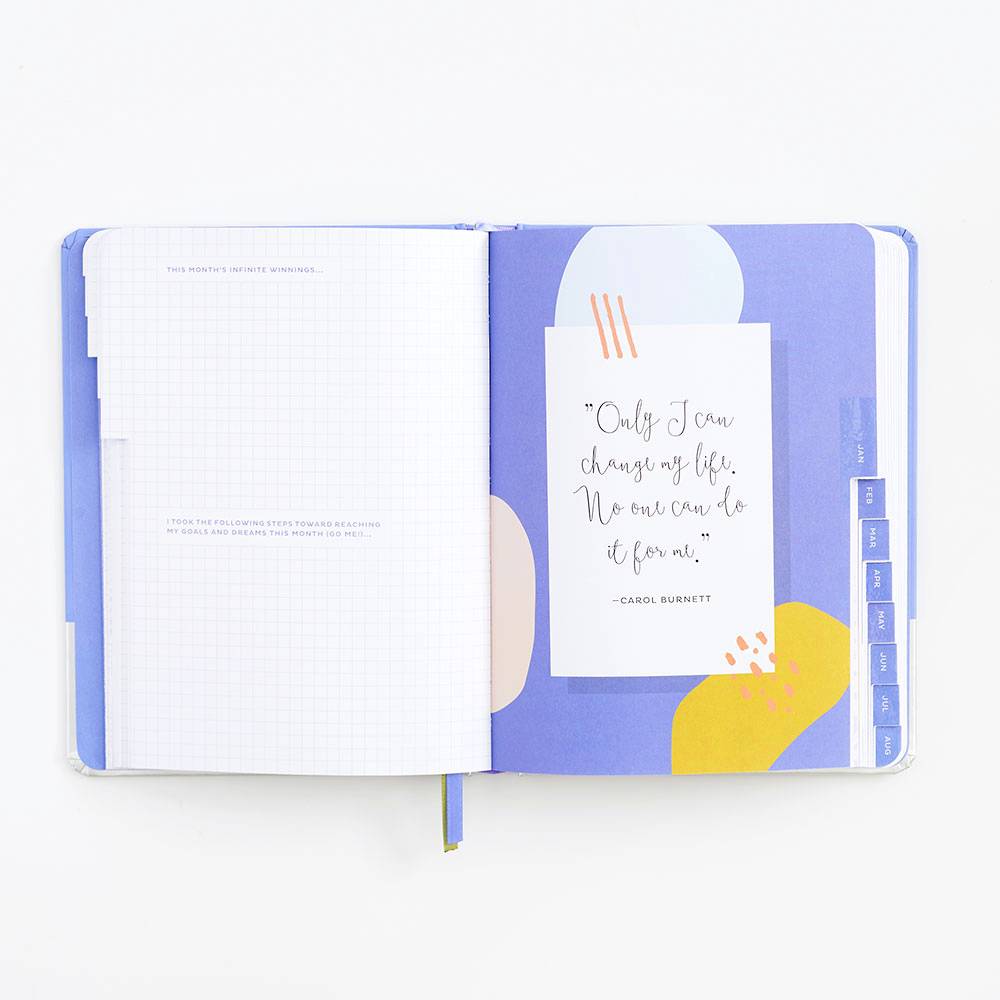 THIS MONTH'S INFINITE WINNINGS...
I TOOK THE FOLLOWING STEPS TOWARD REACHING
MY GOALS AND DREAMS THIS MONTH (GO ME!)...
"Only I can
change my life.
No one can do
it for me."
—CAROL BURNETT
JAN
FEB
MAR
APR
MAY
JUN
JUL
AUG